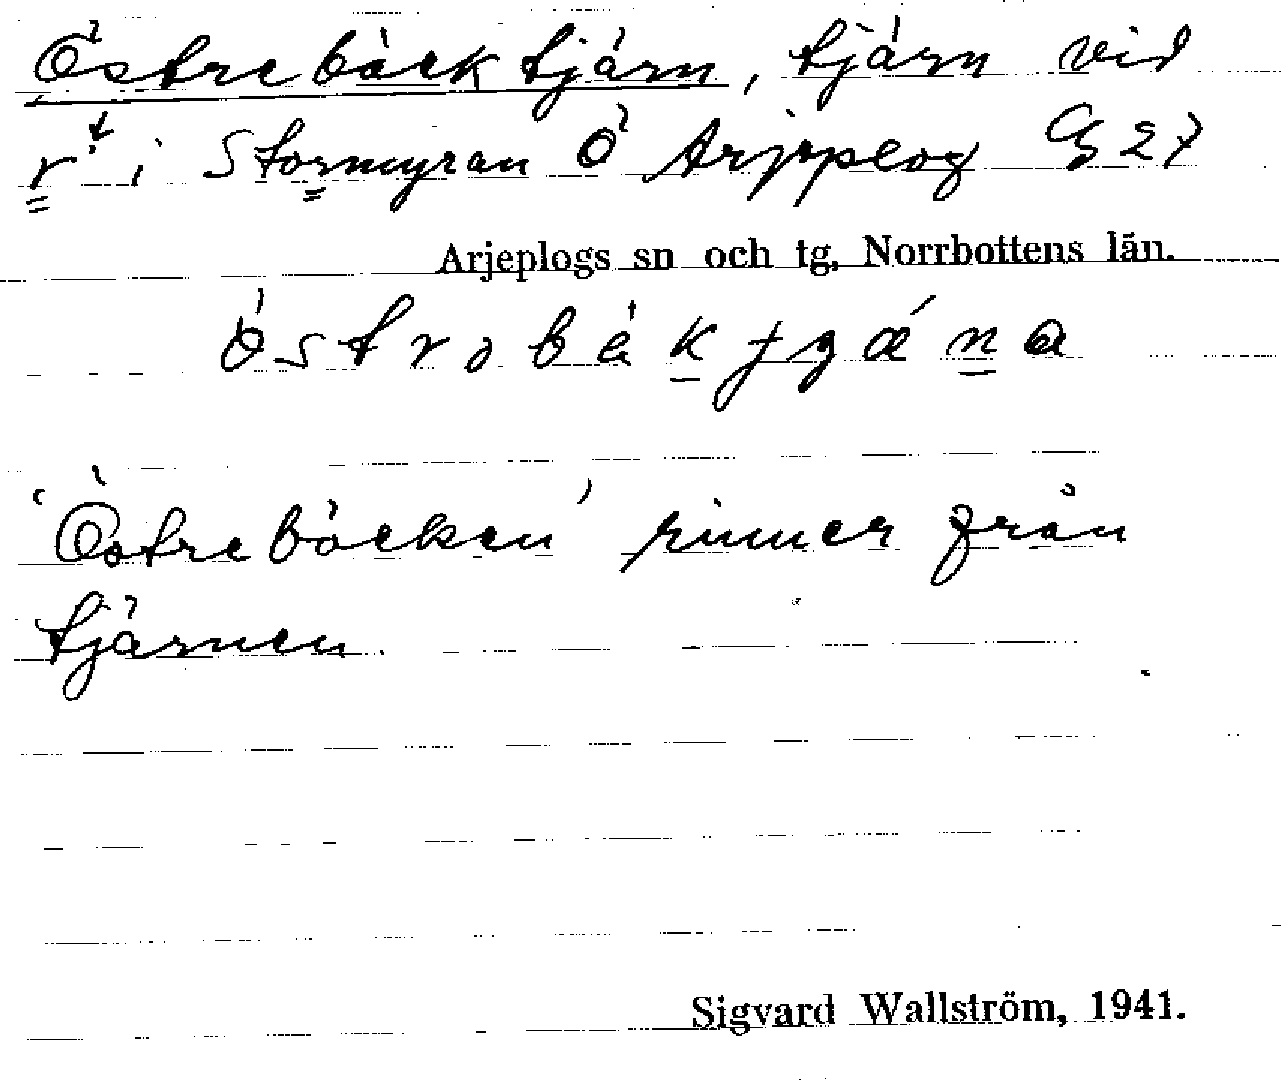 Östrebäcktjärn, tjärn vid
r i Stormyran Ö Arjeplog G 27
Arjeplogs sn och tg, Norrbottens län.
'Östrebäcken' rinner från
tjärnen.
Sigvard Wallström, 1941.